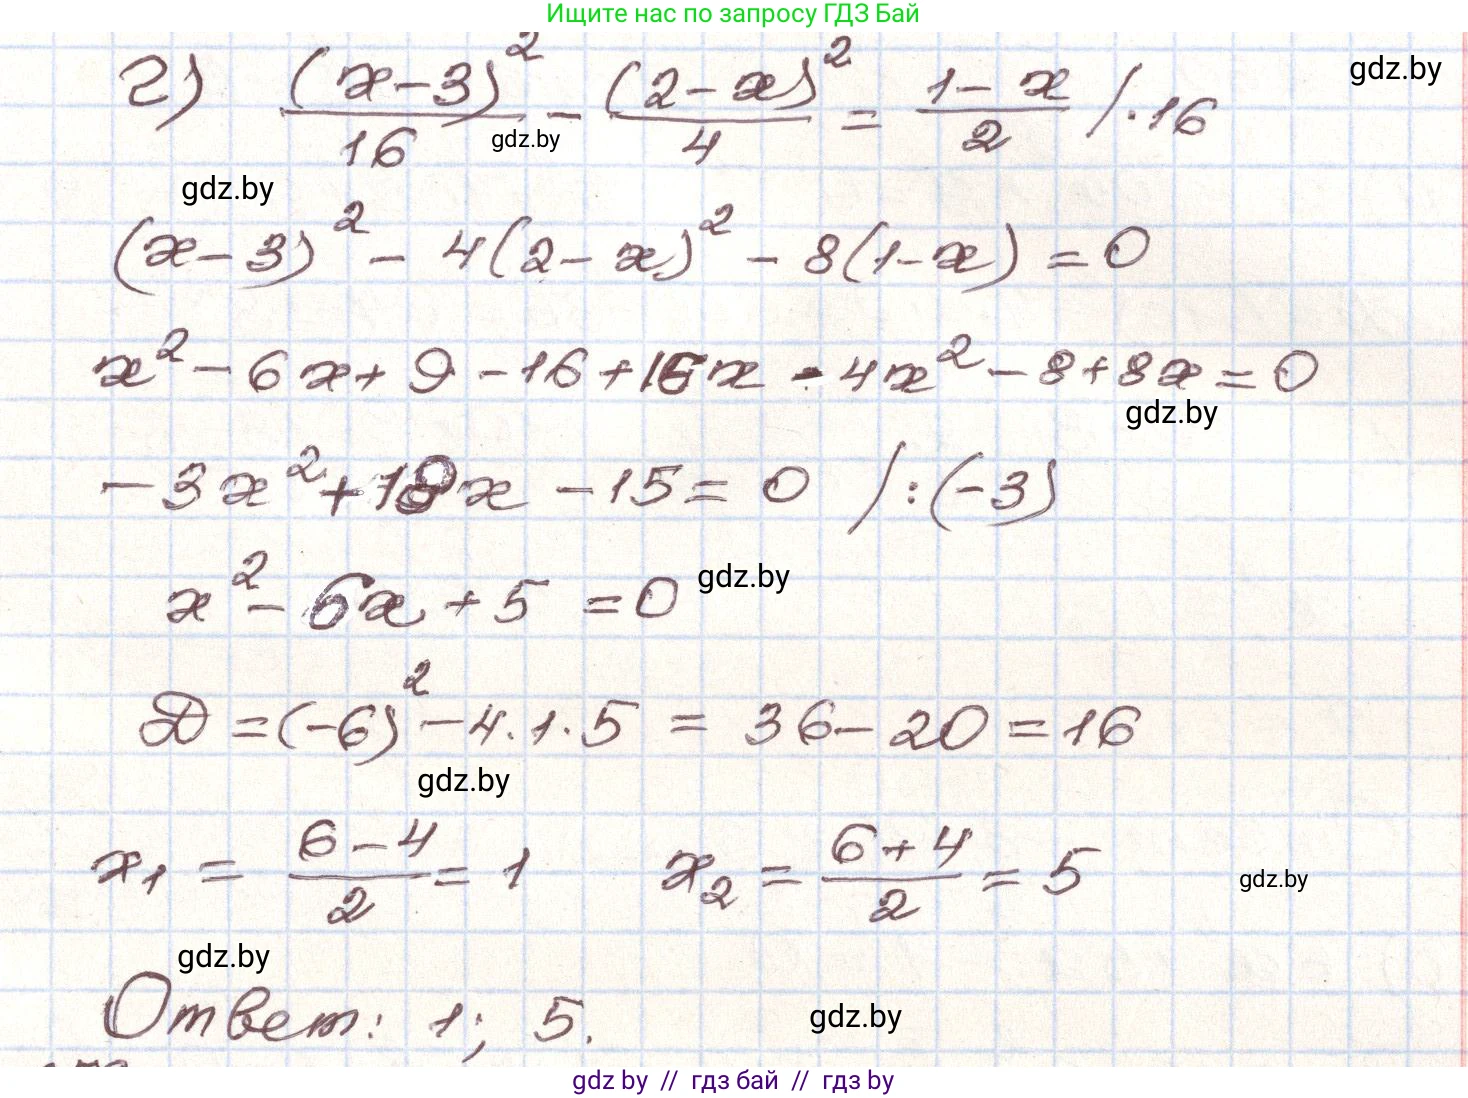 Ищите нас по запросу ГДЗ Бай
г) (x-3)²/16 - (2-x)²/4 = (1-x)/2 /·16
gdz.by
gdz.by
gdz.by
(x-3)² - 4(2-x)² - 8(1-x) = 0
x² - 6x + 9 - 16 + 16x - 4x² - 8 + 8x = 0
gdz.by
-3x² + 18x - 15 = 0 /:(-3)
x² - 6x + 5 = 0
gdz.by
D = (-6)² - 4·1·5 = 36 - 20 = 16
gdz.by
x₁ = (6-4)/2 = 1 x₂ = (6+4)/2 = 5
gdz.by
gdz.by
Ответ: 1; 5.
gdz.by
gdz by // гдз бай // гдз by